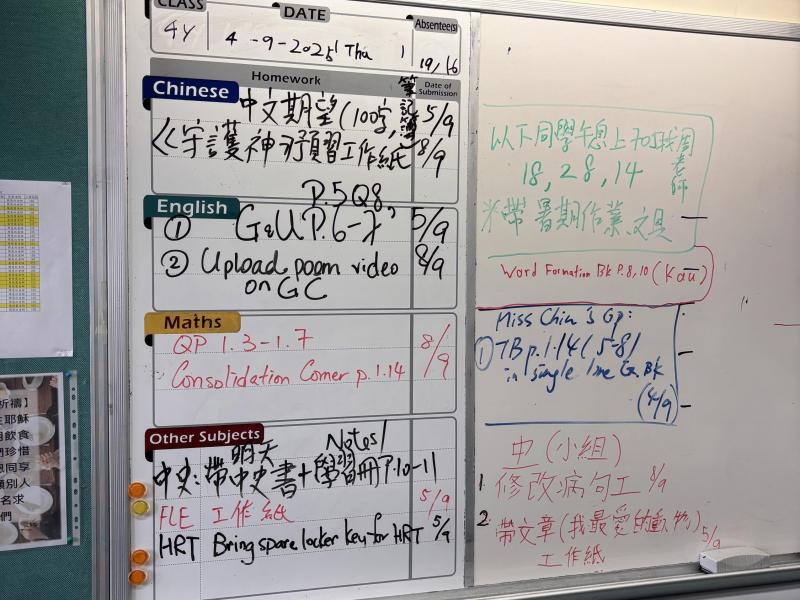 CLASS
DATE
Absentee(s)
4Y
4-9-2025 Thu
19, 16
Homework
Date of Submission
Chinese
中文期望(100字,筆記簿)
5/9
《守護神》預習工作紙
8/9
P.5 Q8,
English
① G&U P.6-7
5/9
② Upload poem video
8/9
on GC
Maths
QP 1.3-1.7
8/9
Consolidation Corner p.1.14
Other Subjects
明天
Notes/
中史:帶中史書+學習冊P.10-11
FLE 工作紙
5/9
HRT Bring spare locker key for HRT
5/9
以下同學午息上705找周老師
18, 28, 14
*帶暑期作業、文具
Word Formation Bk P.8, 10 (Kau)
Miss Chiu's Gp:
① TB p.1.14 (5-8)
in single line Ex. Bk
(4/9)
史(小組)
1. 修改病句工 8/9
2. 帶文章(我最愛的動物) 5/9
工作紙
祈禱】
主耶穌
用飲食
珍惜
同享
別人
名求
們